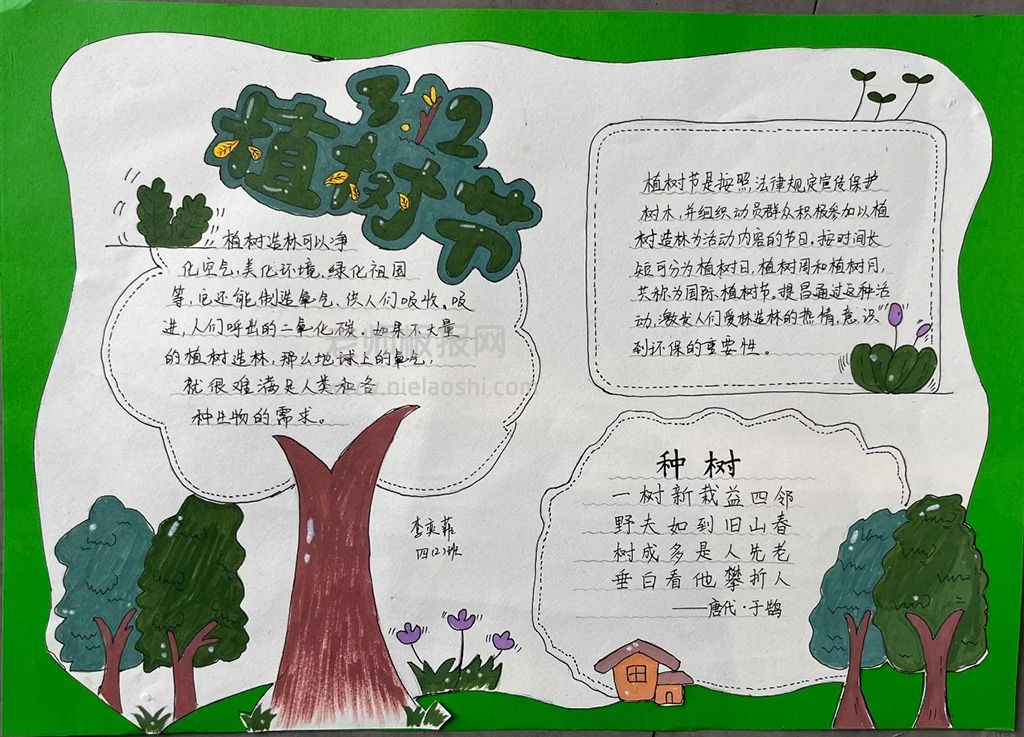 3.12
植树节
植树造林可以净
化空气,美化环境、绿化祖国
等,它还能制造氧气、供人们吸收。吸
进,人们呼出的二氧化碳。如果不大量
的植树造林,那么地球上的氧气,
就很难满足人类和各
种生物的需求。
植树节是按照法律规定宣传保护
树木,并组织动员群众积极参加以植
树造林为活动内容的节日。按时间长
短可分为植树日,植树周和植树月,
共称为国际植树节。提昌通过这种活
动,激发人们爱林造林的热情,意识
到环保的重要性。
种树
一树新栽益四邻
野夫如到旧山春
树成多是人先老
垂白看他攀折人
——唐代·于鹄
李奕菲
四(2)班
老师板报网
www.nielaoshi.com